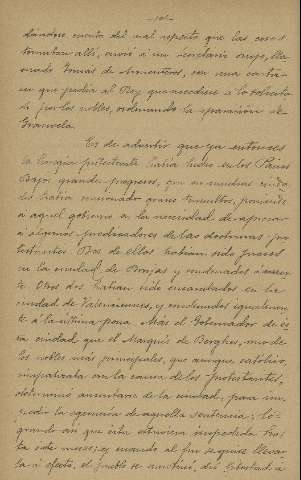 dándose cuenta del mal aspecto que las cosas
tomaban allí, envió á un secretario suyo, lla-
mado Tomás de Armenteros, con una carta
en que pedía al Rey que accediese á lo solicita-
do por los nobles, ordenando la separación de
Granvela.
Es de advertir que ya entonces
la herejía protestante había hecho en los Países
Bajos grandes progresos, que en muchas ciuda-
des había ocasionado graves tumultos, poniendo
á aquel gobierno en la necesidad de apresar
á algunos predicadores de las doctrinas pro-
testantes. Dos de ellos habían sido presos
en la ciudad de y condenados á muer-
te. Otros dos habían sido encarcelados en la
ciudad de Valenciennes, y condenados igualmen-
te á la última pena. Más el Gobernador de es-
ta ciudad que el Marqués de Berghes, uno de
los nobles más principales, que aunque católico,
simpatizaba con la causa de los protestantes,
determinó ausentarse de la ciudad, para im-
pedir la ejecución de aquella sentencia; lo-
grando así que ésta estuviera suspendida has-
ta siete meses; y cuando al fin se quiso llevar-
la á efecto, el pueblo se amotinó, dió libertad á